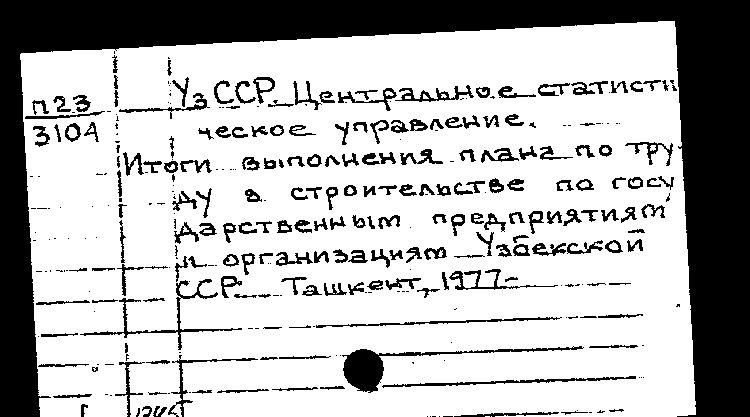 п23
3104
УзССР. Центральное статисти
ческое управление.
Итоги выполнения плана по тру
ду в строительстве по госу
дарственным предприятиям
и организациям Узбекской
ССР. Ташкент, 1977-